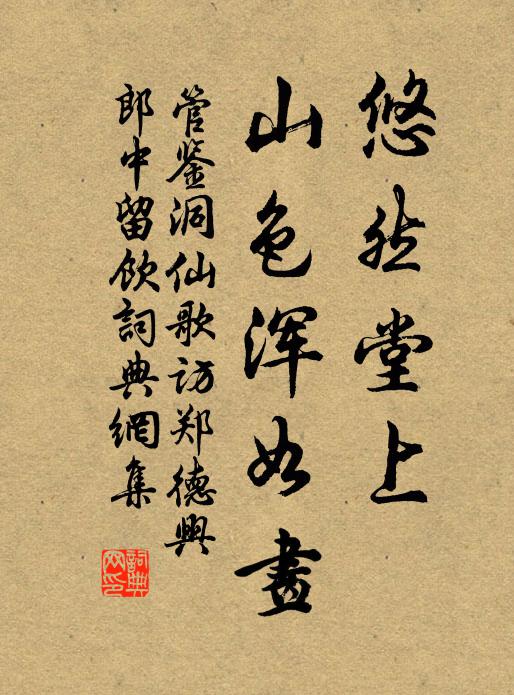 悠然堂上
山色浑如畫
管鉴洞仙歌访郑德興
郎中留飲詞典網集
詞典網印